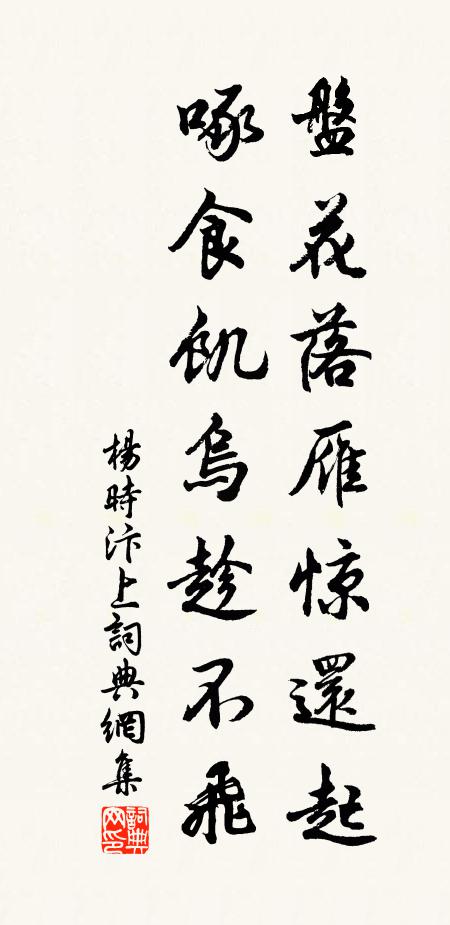 盤花落雁惊還起
啄食飢烏趁不飛
楊時汴上詞典網集
詞典网印